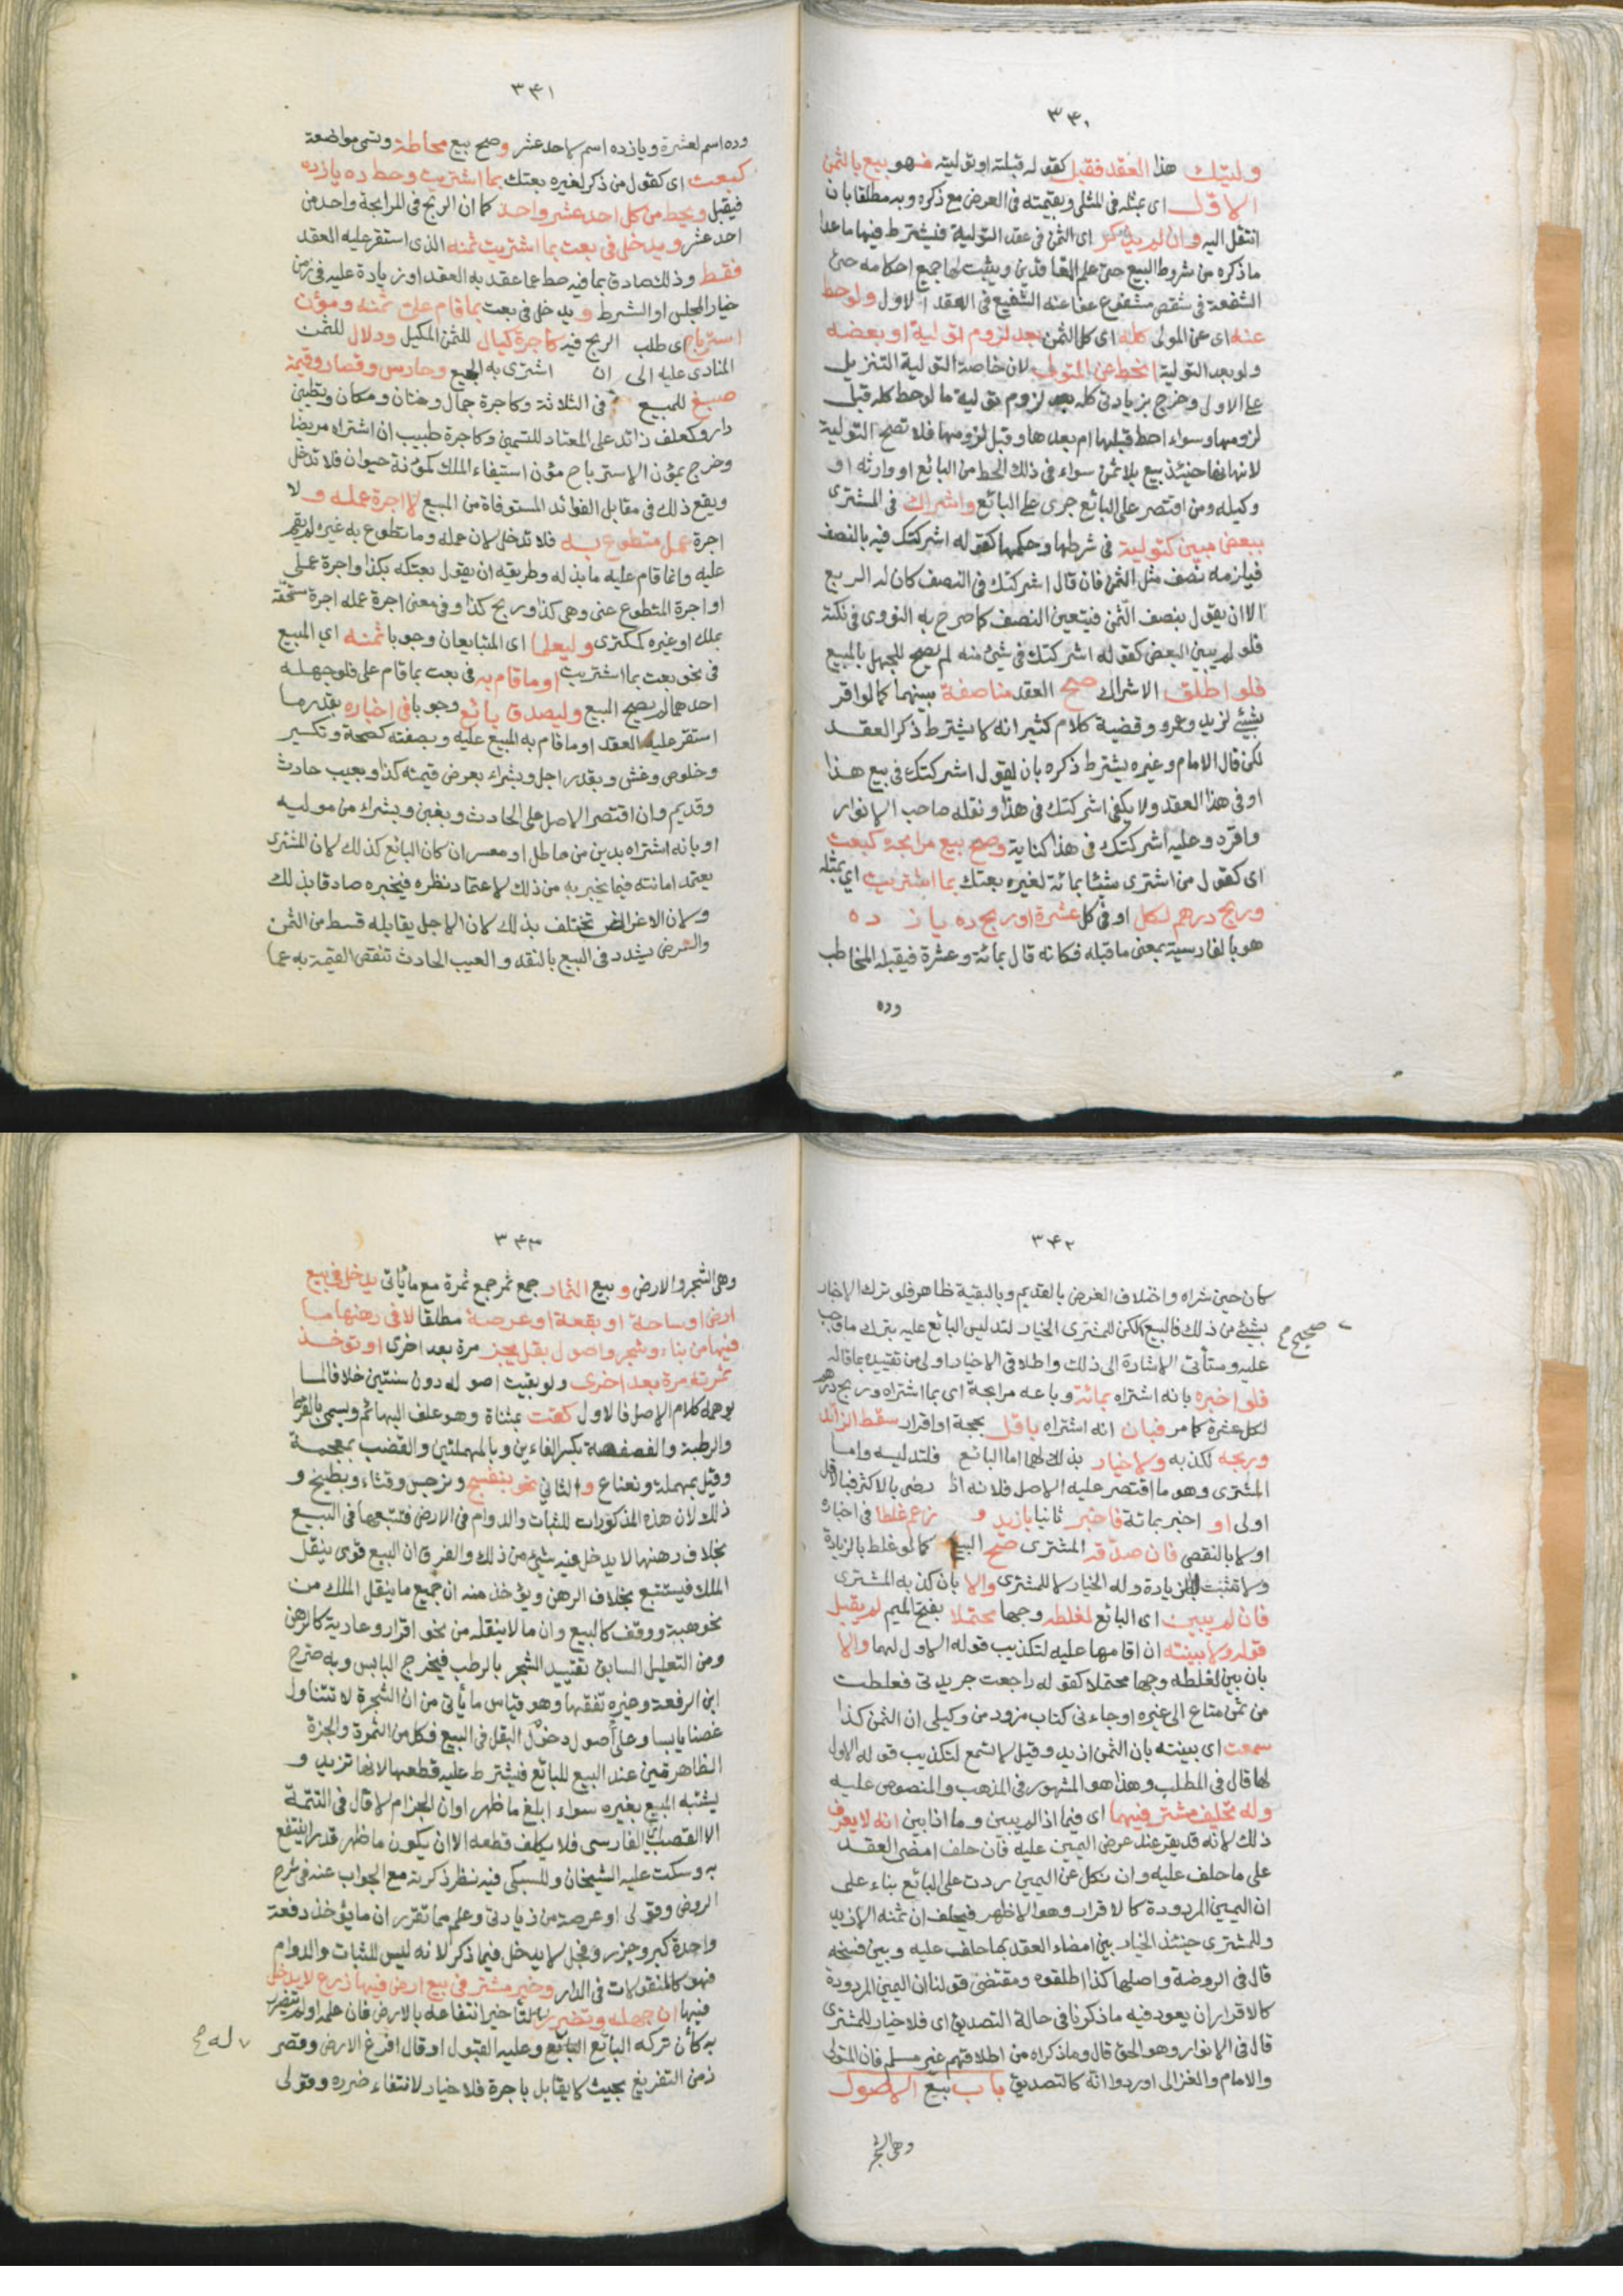 ٣٤٠
وليتك هذا العقد فقبل كقوله قبلته او توليته فهو بيع بالثمن
الاول اى بمثله فى المثلى وبقيمته فى العرض مع ذكره وبه مطلقا بان
انتقل اليه وان لم يذكر اى الثمن فى عقد التولية فيشترط فيها ما عدا
ما ذكره من شروط البيع حتى علم العاقدين ويثبت لها جميع احكامه حتى
الشفعة فى شقص مشفوع عفا عنه الشفيع فى العقد الاول ولو حط
عنه اى عن المولى كله اى كل الثمن بعد لزوم تولية او بعضه
ولو بعد التولية انحط عن المتولى لان خاصة التولية التنزيل
على الاول وخرج بزيادتى كله بعد لزوم تولية ما لو حط كله قبل
لزومها وسواء احط قبلها ام بعدها وقبل لزومها فلا تصح التولية
لانها حينئذ بيع بلا ثمن سواء فى ذلك الحط من البائع او وارثه او
وكيله ومن اقتصر على البائع جرى على البائع واشراك فى المشترى
ببعض مبين كتولية فى شرطها وحكمها كقوله اشركتك فيه بالنصف
فيلزمه نصف مثل الثمن فان قال اشركتك فى النصف كان له الربع
الا ان يقول بنصف الثمن فيتعين النصف كما صرح به النووى فى نكتة
فلو لم يبين البعض كقوله اشركتك فى شئ منه لم يصح للجهل بالمبيع
فلو اطلق الاشراك صح العقد مناصفة بينهما كما لو اقر
بشئ لزيد وعمرو وقضية كلام كثير انه لا يشترط ذكر العقد
لكن قال الامام وغيره يشترط ذكره بان يقول اشركتك فى بيع هذا
او فى هذا العقد ولا يكفى اشركتك فى هذا ونقله صاحب الانوار
واقره وعليه اشركتك فى هذا كناية وصح بيع مرابحة كبعت
اى كقول من اشترى شيئا بمائة لغيره بعتك بما اشتريت اى بمثله
وربح درهم لكل او فى كل عشرة او ربح ده يا ز ده
هو بالفارسية بمعنى ما قبله فكانه قال بمائة وعشرة فيقبله المخاطب
وده
٣٤١
وده اسم لعشرة ويازده اسم لاحد عشر وصح بيع محاطة وتسمى مواضعة
كبعت اى كقول من ذكر لغيره بعتك بما اشتريت وحط ده يازده
فيقبل ويحط من كل احد عشر واحد كما ان الربح فى المرابحة واحد من
احد عشر ويدخل فى بعت بما اشتريت ثمنه الذى استقر عليه العقد
فقط وذلك صادق بما فيه حط عما عقد به العقد او زيادة عليه فى زمن
خيار المجلس او الشرط و يدخل فى بعت بما قام على ثمنه ومؤن
استرباح اى طلب الربح فيه كاجرة كيال للثمن المكيل ودلال للثمن
المنادى عليه الى ان اشترى به المبيع وحارس وقصار وقيمة
صبغ للمبيع فى الثلاثة وكاجرة جمال وختان ومكان وتطيين
دار وكعلف زائد على المعتاد للتسمين وكاجرة طبيب ان اشتراه مريضا
وخرج بمؤن الاسترباح مؤن استيفاء الملك كمؤنة حيوان فلا تدخل
ويقع ذلك فى مقابل الفوائد المستوفاة من المبيع لا اجرة عمله و لا
اجرة عمل متطوع به فلا تدخل لان عمله وما تطوع به غيره لم يقم
عليه وانما قام عليه ما بذله وطريقه ان يقول بعتكه بكذا واجرة عملى
او اجرة المتطوع عنى وهى كذا وربح كذا وفى معنى اجرة عمله اجرة مستحقة
بملك او غيره كمكترى وليعلما اى المتبايعان وجوبا ثمنه اي المبيع
فى نحو بعت بما اشتريت او ما قام به فى بعت بما قام على فلو جهله
احدهما لم يصح المبيع وليصدق بائع وجوبا فى اخباره بقدر ما
استقر عليه العقد او ما قام به المبيع عليه وبصفته كصحة وتكسير
وخلوص وغش وبقدر اجل وبشراء بعرض قيمته كذا وبعيب حادث
وقديم وان اقتصر الاصل على الحادث وبغبن وبشراء من موليه
او بانه اشتراه بدين من مماطل او معسر ان كان البائع كذلك لان المشترى
يعتمد امانته فيما يخبر به من ذلك لاعتماد نظره فيخبره صادقا بذلك
ولان الاغراض تختلف بذلك لان الاجل يقابله قسط من الثمن
والعرض يشدد فى البيع بالنقد والعيب الحادث تنقص القيمة به عما
٣٤٢
كان حين شراه واختلاف الغرض بالقديم وبالبقية ظاهر فلو ترك الاخبار
بشئ من ذلك فالبيع لكن للمشترى الخيار لتدليس البائع عليه بترك ما وجب
صحيح
عليه وستأتى الاشارة الى ذلك واطلاقى الاخبار اولى من تقييده بما قاله
فلو اخبره بانه اشتراه بمائة وباعه مرابحة اى بما اشتراه وربح درهم
لكل عشرة كما مر فبان انه اشتراه باقل بحجة او اقرار سقط الزائد
وربحه لكذبه ولا خيار بذلك لهما اما البائع فلتدليسه واما
المشترى وهو ما اقتصر عليه الاصل فلانه اذا رضى بالاكثر فبالاقل
اولى او اخبر بمائة فاخبر ثانيا بازيد و زعم غلطا فى اخباره
اولا بالنقص فان صدقه المشترى صح البيع كما لو غلط بالزيادة
ولا تثبت الزيادة وله الخيار لا للمشترى والا بان كذبه المشترى
فان لم يبين اى البائع لغلطه وجها محتملا بفتح الميم لم يقبل
قوله ولا بينته ان اقامها عليه لتكذيب قوله الاول لهما والا
بان بين لغلطه وجها محتملا كقوله راجعت جريدتى فغلطت
من ثمن متاع الى غيره او جاءنى كتاب مزور من وكيلى ان الثمن كذا
سمعت اى بينته بان الثمن ازيد وقيل لا تسمع لتكذيب قوله الاول
لها قال فى المطلب وهذا هو المشهور فى المذهب والمنصوص عليه
وله تحليف مشتر فيهما اى فيما اذا لم يبين وما اذا بين انه لا يعرف
ذلك لانه قد يقر عند عرض اليمين عليه فان حلف امضى العقد
على ما حلف عليه وان نكل عن اليمين ردت على البائع بناء على
ان اليمين المردودة كالاقرار وهو الاظهر فيحلف ان ثمنه الازيد
وللمشترى حينئذ الخيار بين امضاء العقد بما حلف عليه وبين فسخه
قال فى الروضة واصلها كذا اطلقوه ومقتضى قولنا ان اليمين المردودة
كالاقرار ان يعود فيه ما ذكرنا فى حالة التصديق اى فلا خيار للمشترى
قال فى الانوار وهو الحق قال وما ذكراه من اطلاقهم غير مسلم فان المتولى
والامام والغزالى اوردوا انه كالتصديق باب بيع الاصول
وهى الشجر
٣٤٣
وهى الشجر والارض و بيع الثمار جمع ثمر جمع ثمرة مع ما يأتى يدخل فى بيع
ارض او ساحة او بقعة او عرصة مطلقا لا فى رهنها ما
فيها من بناء وشجر واصول بقل يجز مرة بعد اخرى او تؤخذ
ثمرته مرة بعد اخرى ولو بقيت اصوله دون سنتين خلافا لما
يوهمه كلام الاصل فالاول كقت بمثناة وهو علف البهائم ويسمى بالقرط
والرطبة والفصفصة بكسر الفاءين وبالمهملتين والقضب بمعجمة
وقيل بمهملة ونعناع و الثانى نحو بنفسج ونرجس وقثاء وبطيخ و
ذلك لان هذه المذكورات للثبات والدوام فى الارض فتتبعها فى البيع
بخلاف رهنها لا يدخل فيه شئ من ذلك والفرق ان البيع قوى ينقل
الملك فيستتبع بخلاف الرهن ويؤخذ منه ان جميع ما ينقل الملك من
نحو هبة ووقف كالبيع وان ما لا ينقله من نحو اقرار وعارية كالرهن
ومن التعليل السابق تقييد الشجر بالرطب فيخرج اليابس وبه صرح
ابن الرفعة وغيره تفقها وهو قياس ما يأتى من ان الشجرة لا تتناول
غصنا يابسا وعلى اصول دخول البقل فى البيع فكل من الثمرة والجزة
الظاهرتين عند البيع للبائع فيشترط عليه قطعها لانها تزيد و
يشتبه المبيع بغيره سواء ابلغ ما ظهر اوان الجز ام لا قال فى التتمة
الا القصب اى الفارسى فلا يكلف قطعه الا ان يكون ما ظهر قدرا ينتفع
به وسكت عليه الشيخان وللسبكى فيه نظر ذكرته مع الجواب عنه فى شرح
الروض وقولى او عرصة من زيادتى وعلم مما تقرر ان ما يؤخذ دفعة
واحدة كبر وجزر وفجل لا يدخل فيما ذكر لانه ليس للثبات والدوام
فهو كالمنقولات فى الدار وخير مشتر فى بيع ارض فيها زرع لا يدخل
فيها ان جهله وتضرر لتاخير انتفاعه بالارض فان علمه او لم يتضرر
به كأن تركه البائع وعليه القبول او قال افرغ الارض وقصر
له
زمن التفريغ بحيث لا يقابل باجرة فلا خيار لانتفاء ضرره وقولى